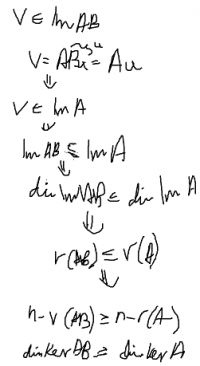 V ∈ Im AB
V = ABx = Au
⇓
V ∈ Im A
⇓
Im AB ⊆ Im A
⇓
dim Im AB ≤ dim Im A
⇓
r(AB) ≤ r(A)
⇓
n-r(AB) ≥ n-r(A)
dim ker AB ≥ dim ker A